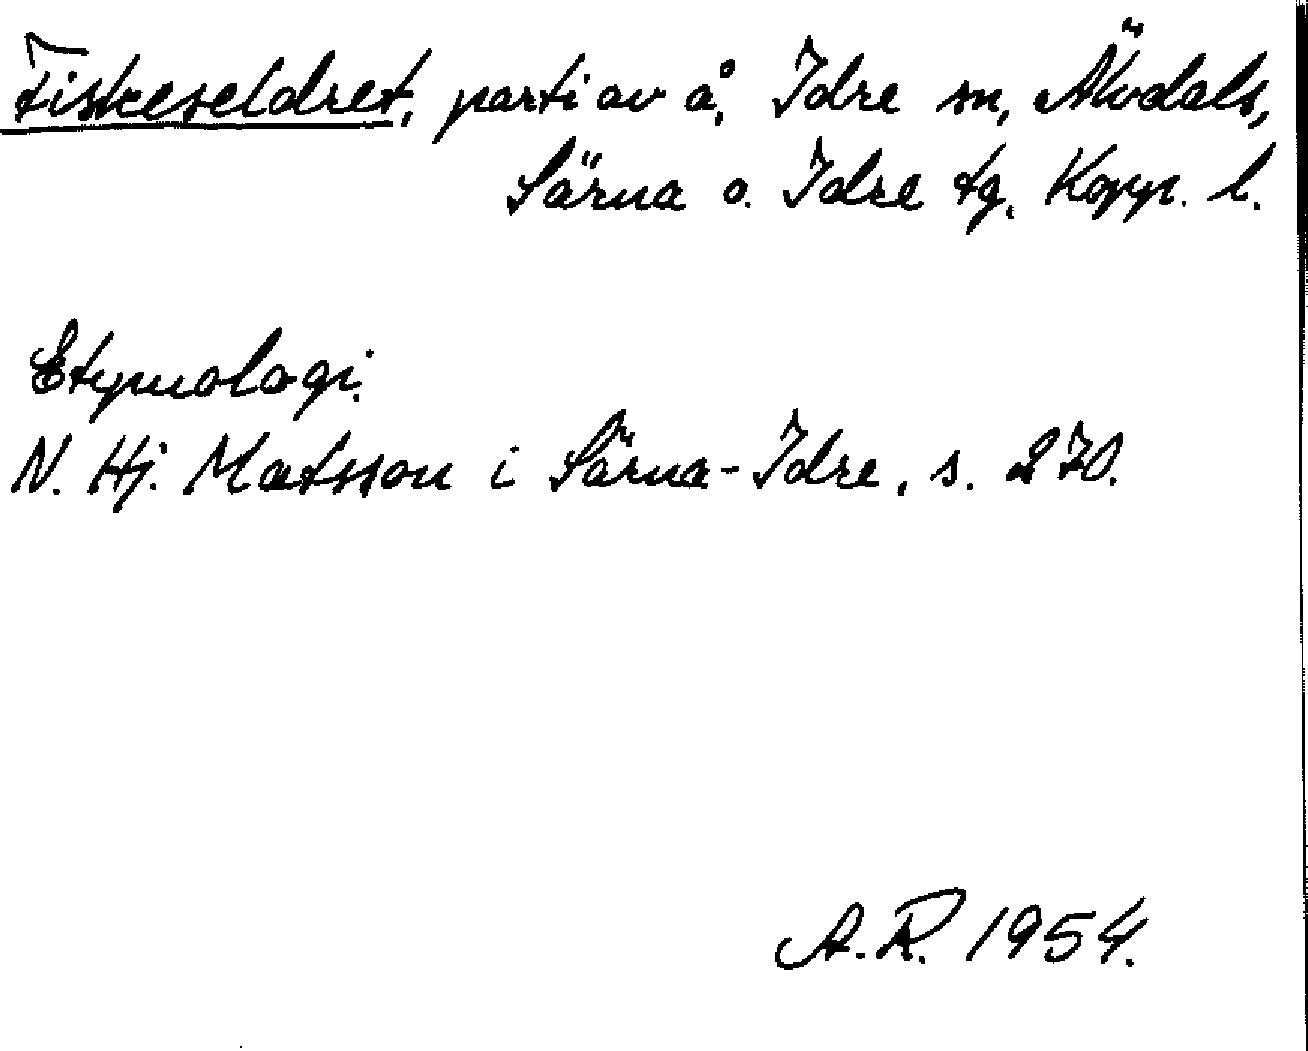 Fiskeseldret, parti av å, Idre sn, Älvdals,
Särna o. Idre tg, Kopp. l.
Etymologi.
N. Hj. Matsson i Särna-Idre, s. 270.
A.R. 1954.